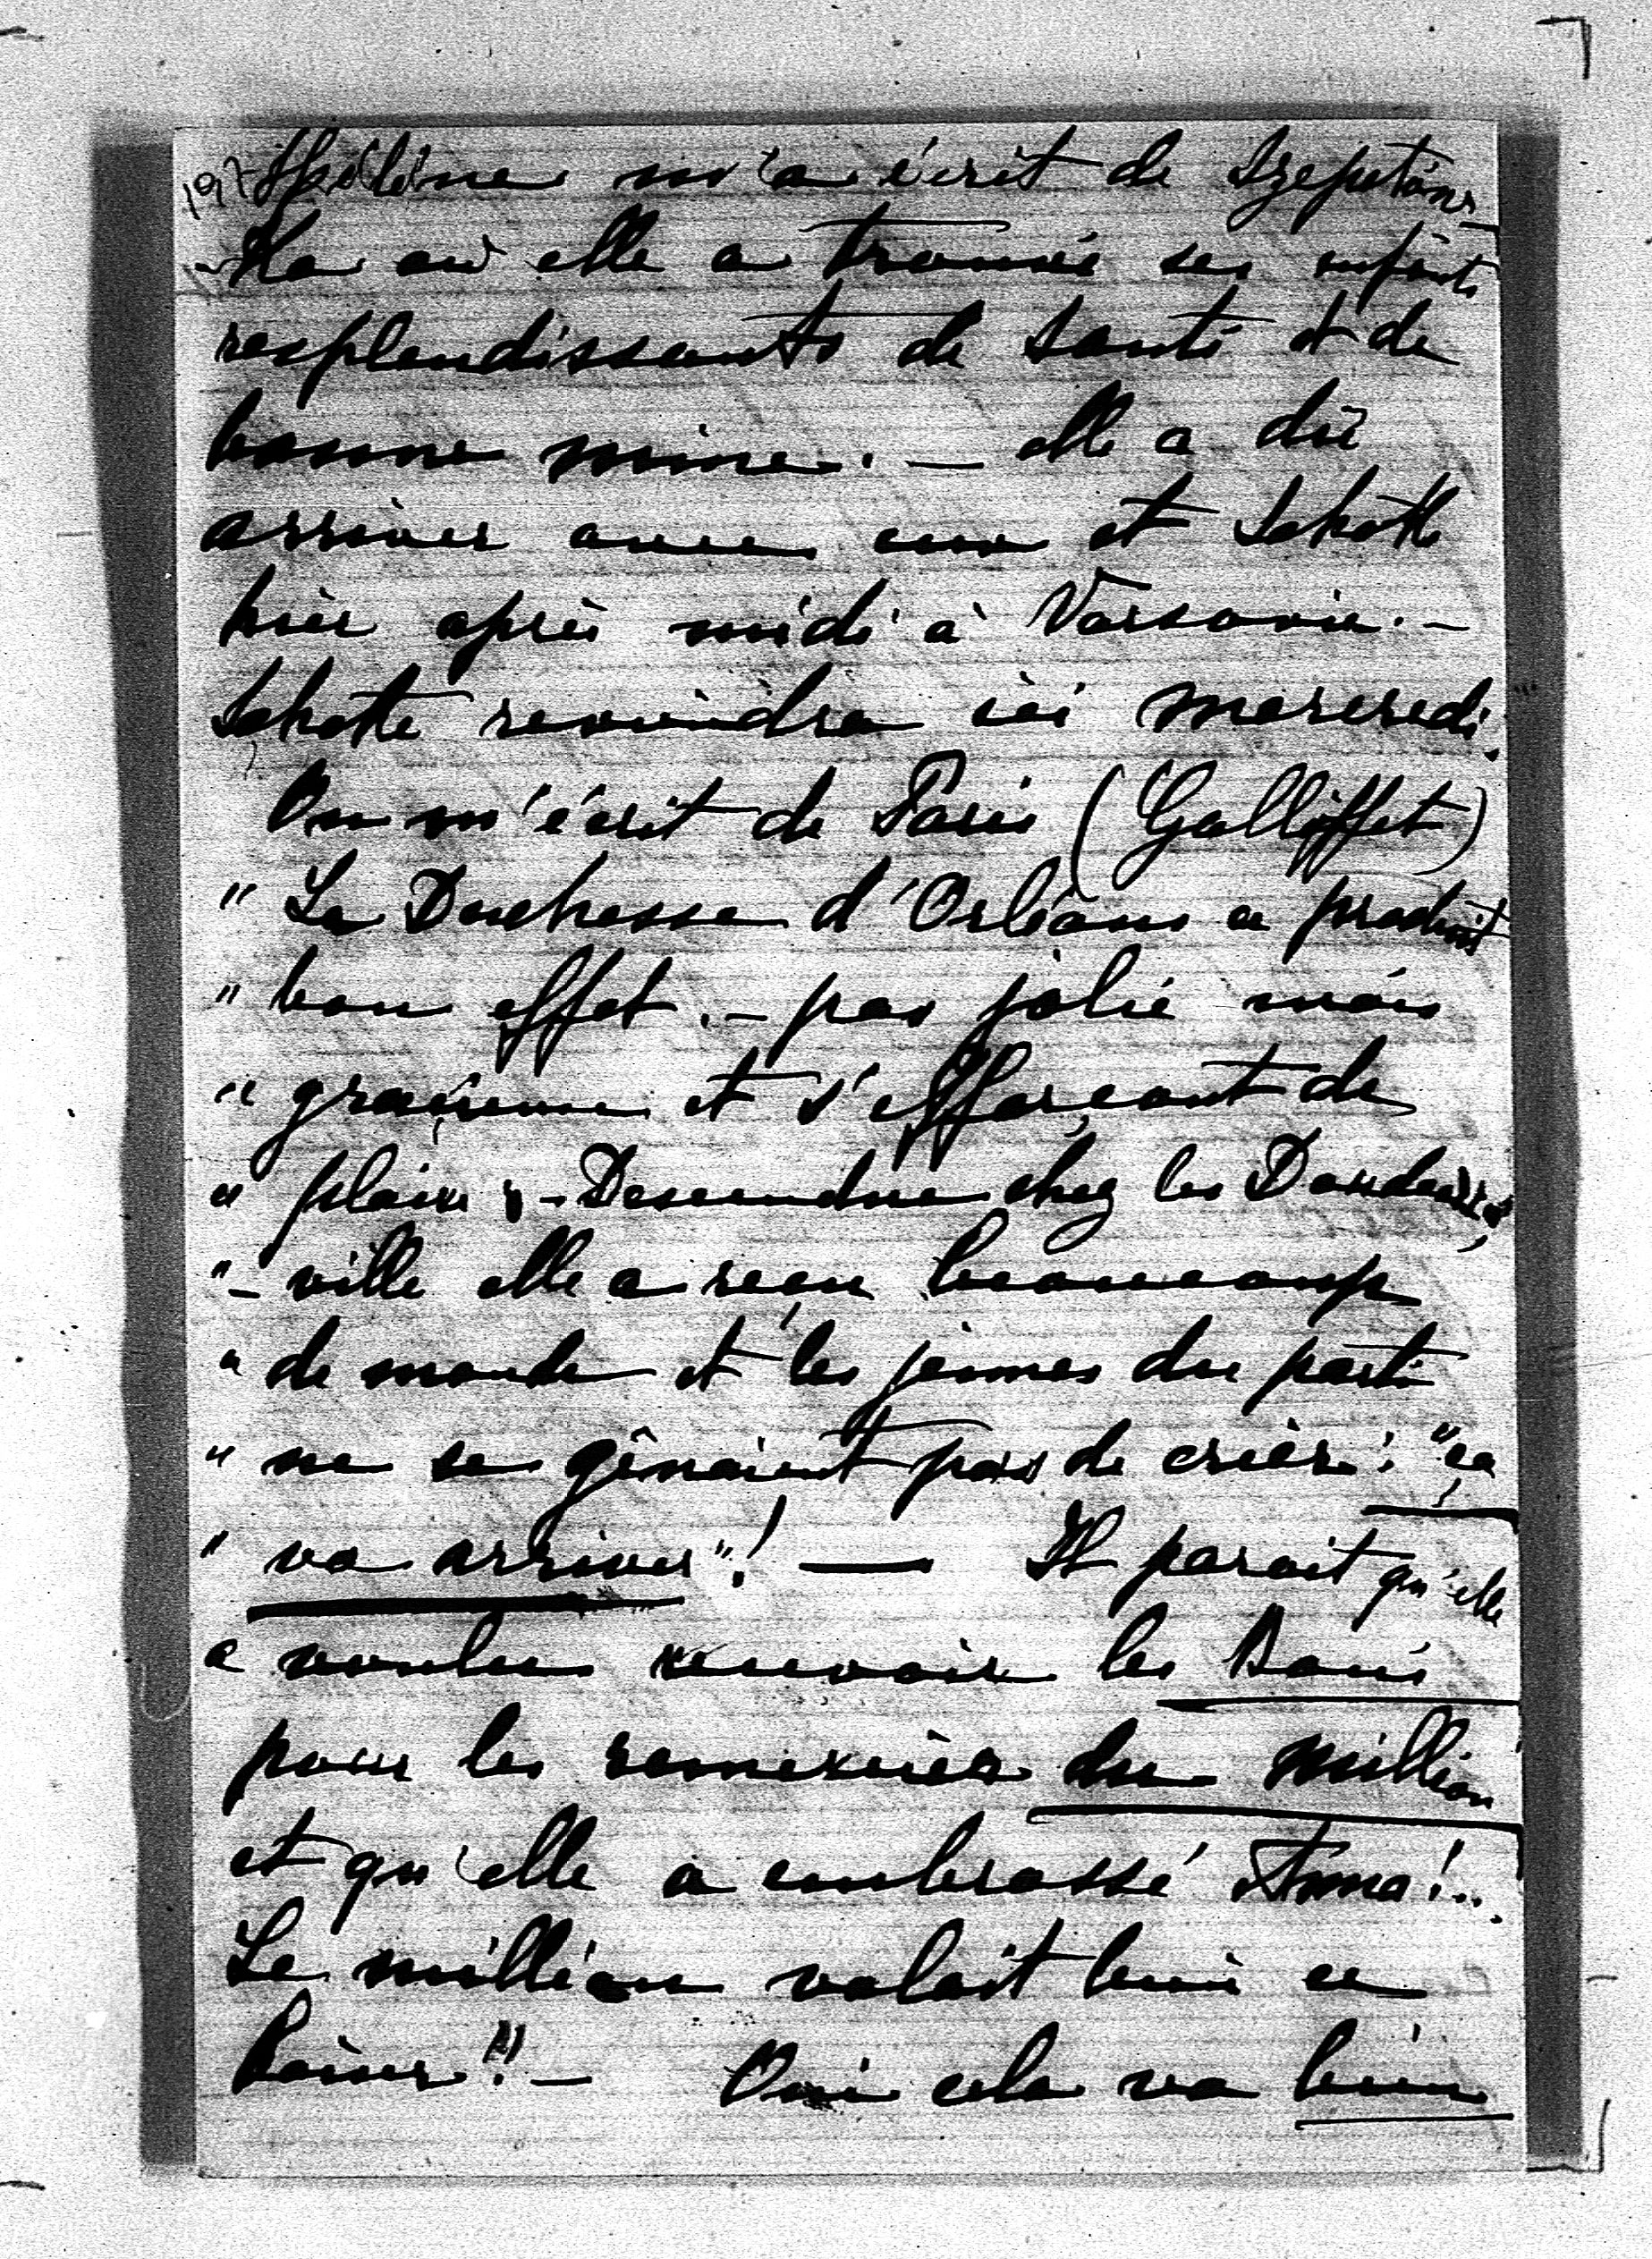 197 Hélène m'a écrit de Szepetów-
-Ka où elle a trouvé ses enfants
resplendissants de santé et de
bonne mine. — elle a dû
arriver avec eux et Schotte
hier après midi à Varsovie. —
Schotte reviendra ici mercredi.
On m'écrit de Paris (Galliffet)
" La Duchesse d'Orléans a produit
" bon effet. — pas jolie mais
" gracieuse et s'efforçant de
" plaire. — Descendue chez les Doudeau-
" - ville elle a reçu beaucoup
" de monde et les jeunes du parti
" ne se gênaient pas de crier: "ça
" va arriver"! — Il parait qu'elle
a voulu recevoir les Boni
pour les remercier du million
et qu'elle a embrassé Anna!..
Le million valait bien ce
baiser!! — Oui cela va bien